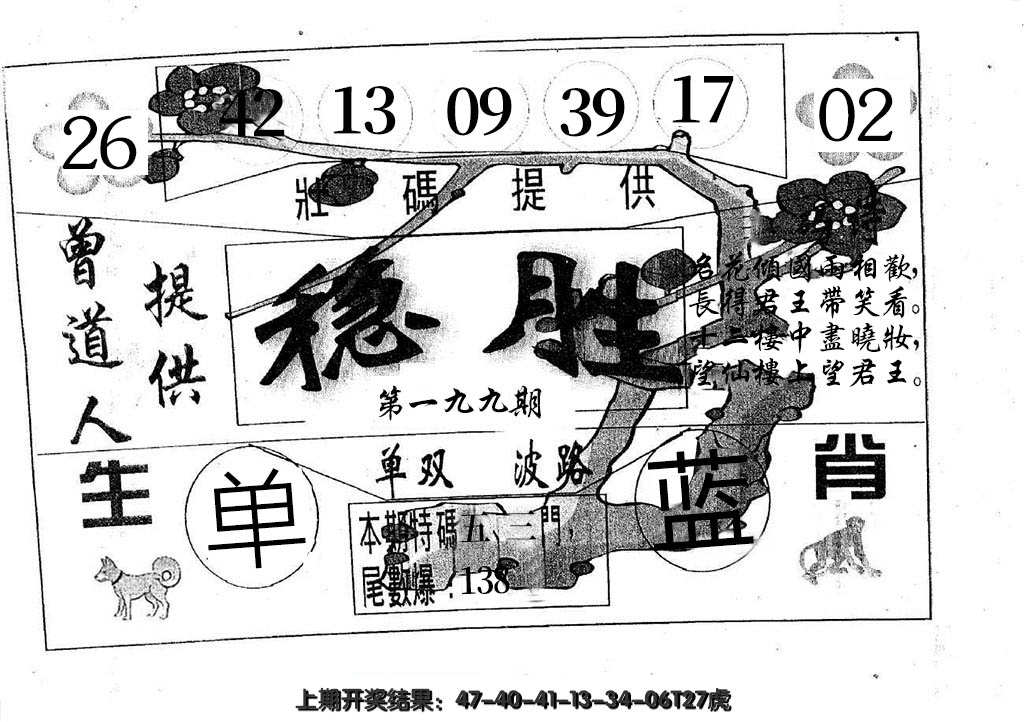 26 42 13 09 39 17 02
壯碼提供
特
曾道人
提供
稳胜
第一九九期
名花傾國兩相歡，
長得君王帶笑看。
十二樓中盡曉妝，
望仙樓上望君王。
生肖
单双 波路
单
蓝
本期特碼五、三門，
尾數爆：138
上期开奖结果：47-40-41-13-34-06T27虎